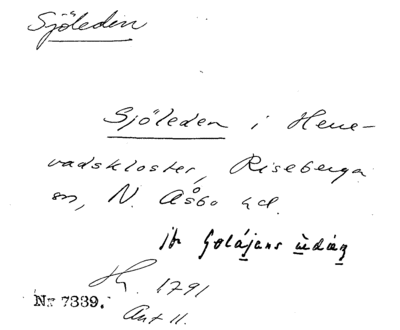 Sjöleden
Sjöleden i Herre-
vadskloster, Riseberga
sn, N. Åsbo hd.
jfr Golájans
1791
Nr 7339.
Ant 11.